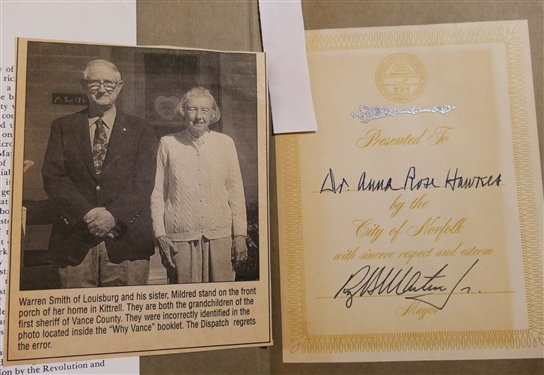 Smith
Warren Smith of Louisburg and his sister, Mildred stand on the front
porch of her home in Kittrell. They are both the grandchildren of the
first sheriff of Vance County. They were incorrectly identified in the
photo located inside the "Why Vance" booklet. The Dispatch regrets
the error.
ion by the Revolution and
Presented To
Dr. Anna Rose Hawkes
by the
City of Norfolk
with sincere respect and esteem
Mayor